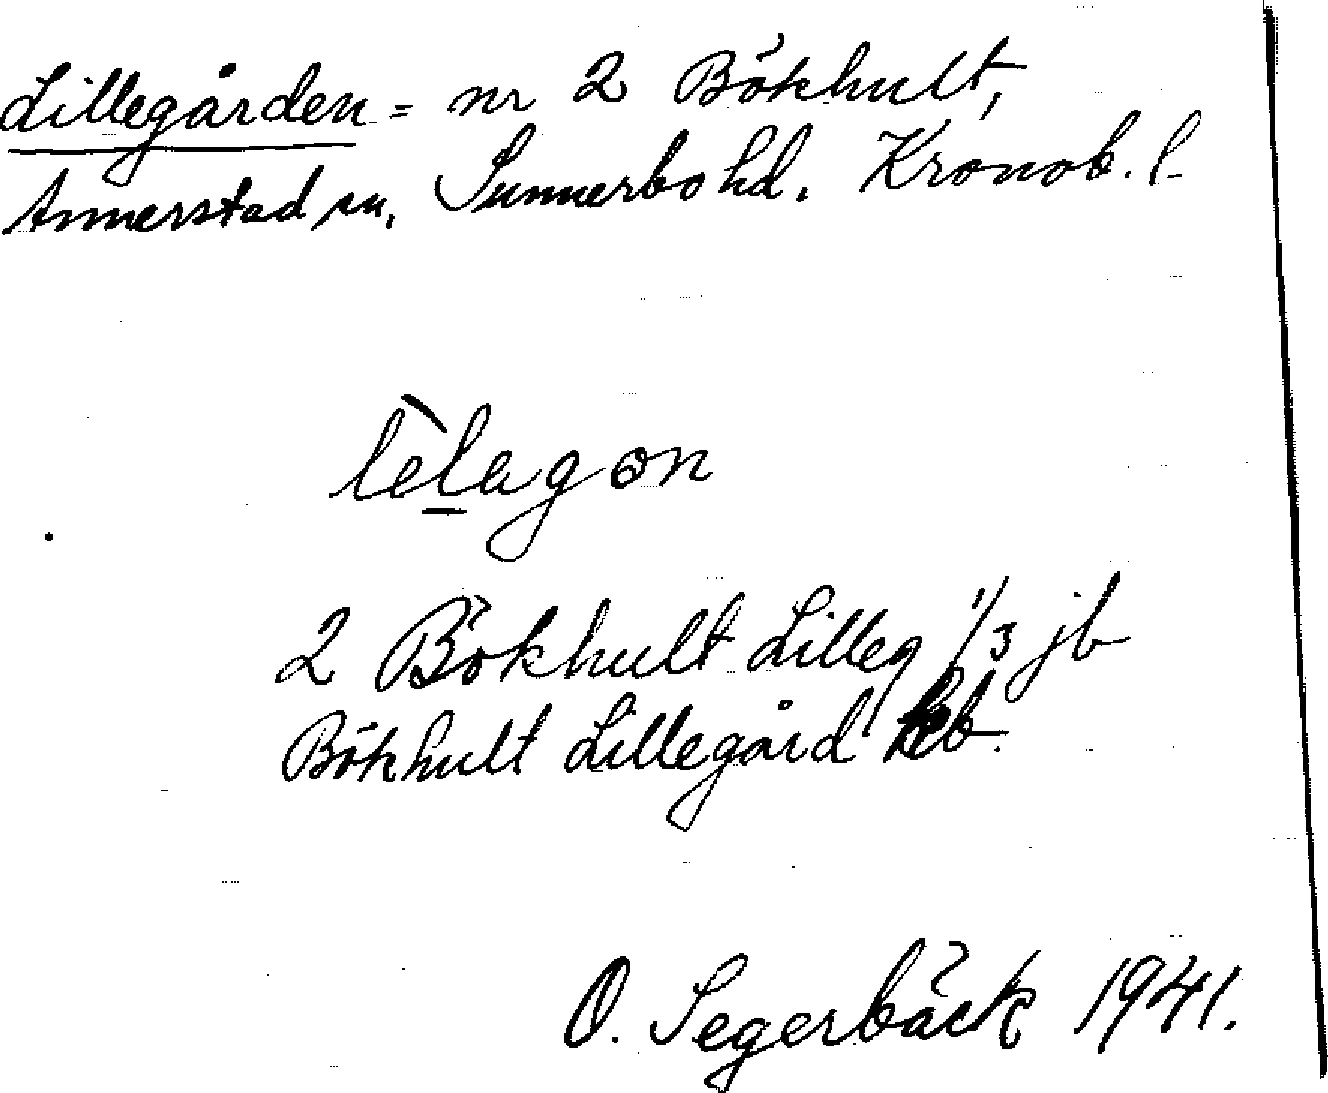 Lillegården = nr 2 Bökhult,
Annerstad sn, Sunnerbo hd. Kronob. l.
lèlagon
2 Bökhult Lilleg 1/3 jb
Bökhult Lillegård
O. Segerbäck 1941.